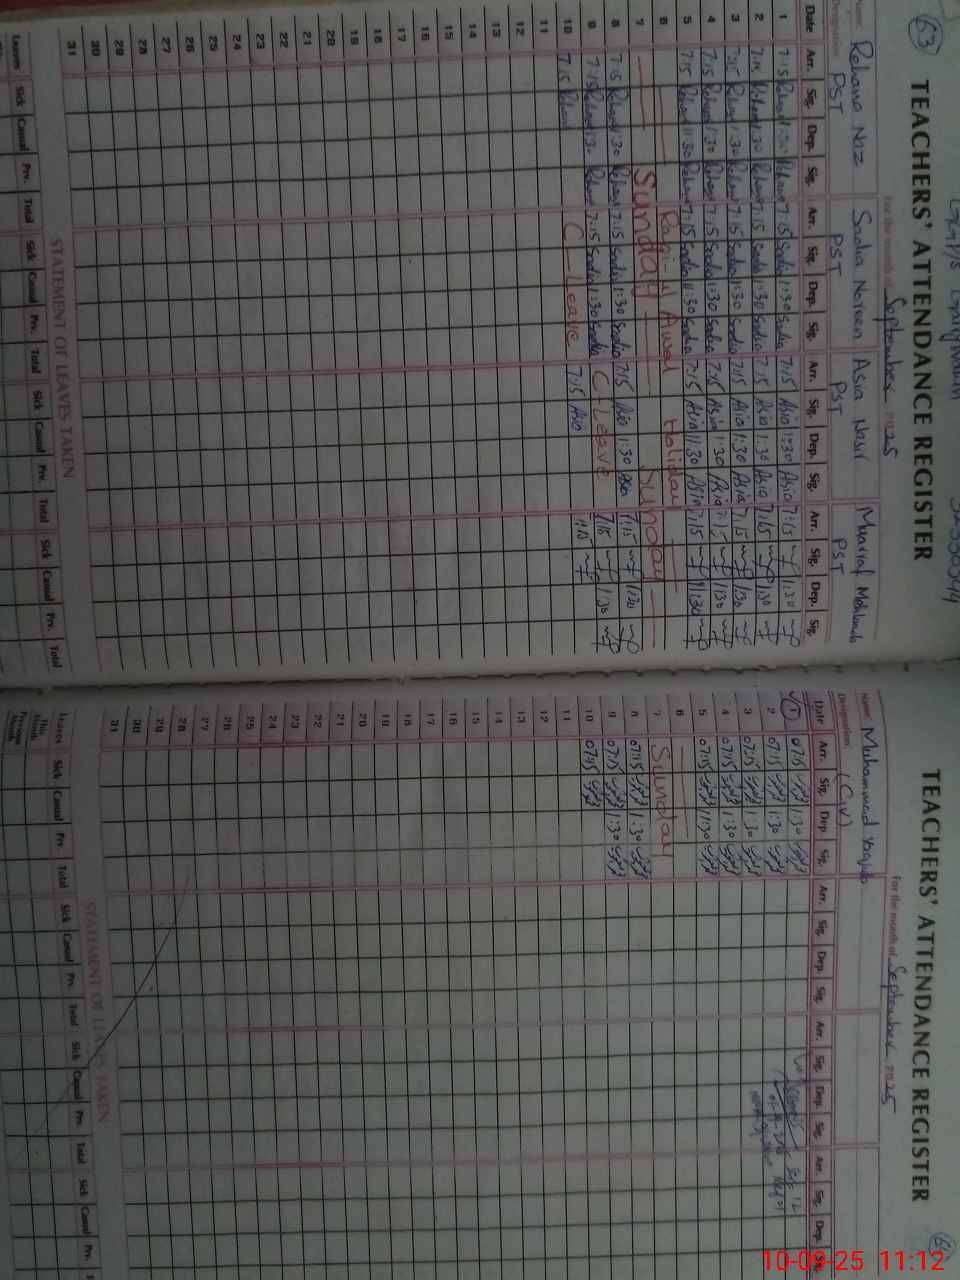 63
TEACHERS' ATTENDANCE REGISTER
For the month of September 2025
Name: Rehana Naz Sadia Noreen Asia Nasir
Designation PST PST PST PST
Date Arr. Sig. Dep. Sig. Arr. Sig. Dep. Sig. Arr. Sig. Dep. Sig. Arr. Sig. Dep. Sig.
1 7:15 Rehana 1:30 Rehana 7:15 Sadia 1:30 Sadia 7:15 Asia 1:30 Asia 7:15 1:30
2 7:15 Rehana 1:30 Rehana 7:15 Sadia 1:30 Sadia 7:15 Asia 1:30 Asia 7:15 1:30
3 7:15 Rehana 1:30 Rehana 7:15 Sadia 1:30 Sadia 7:15 Asia 1:30 Asia 7:15 1:30
4 7:15 Rehana 1:30 Rehana 7:15 Sadia 1:30 Sadia 7:15 Asia 1:30 Asia 7:15 1:30
5 7:15 Rehana 11:30 Rehana 7:15 Sadia 11:30 Sadia 7:15 Asia 11:30 Asia 7:15 11:30
6 Holiday
7 Sunday Sunday
8 7:15 Rehana 1:30 Rehana 7:15 Sadia 1:30 Sadia 7:15 Asia 1:30 Asia 7:15 1:30
9 7:15 Rehana 1:30 Rehana 7:15 Sadia 1:30 Sadia C-Leave 7:15 1:30
10 7:15 Rehana C-Leave 7:15 Asia 7:15
11
12
13
14
15
16
17
18
19
20
21
22
23
24
25
26
27
28
29
30
31
STATEMENT OF LEAVES TAKEN
Leaves Sick Casual Prv. Total Sick Casual Prv. Total Sick Casual Prv. Total Sick Casual Prv. Total
TEACHERS' ATTENDANCE REGISTER
For the month of September 2025
Name: Muhammad Yaqoob
Designation (C.IV)
Date Arr. Sig. Dep. Sig. Arr. Sig. Dep. Sig. Arr. Sig. Dep. Sig. Arr. Sig. Dep.
1 07:15 1:30
2 07:15 1:30
3 07:15 1:30
4 07:15 1:30
5 07:15 11:30
6
7 Sunday
8 07:15 1:30
9 07:15 1:30
10 07:15
11
12
13
14
15
16
17
18
19
20
21
22
23
24
25
26
27
28
29
30
31
STATEMENT OF LEAVES TAKEN
Leaves Sick Casual Prv. Total Sick Casual Prv. Total Sick Casual Prv. Total Sick Casual Prv.
This Month
Previous Month
10-09-25 11:12